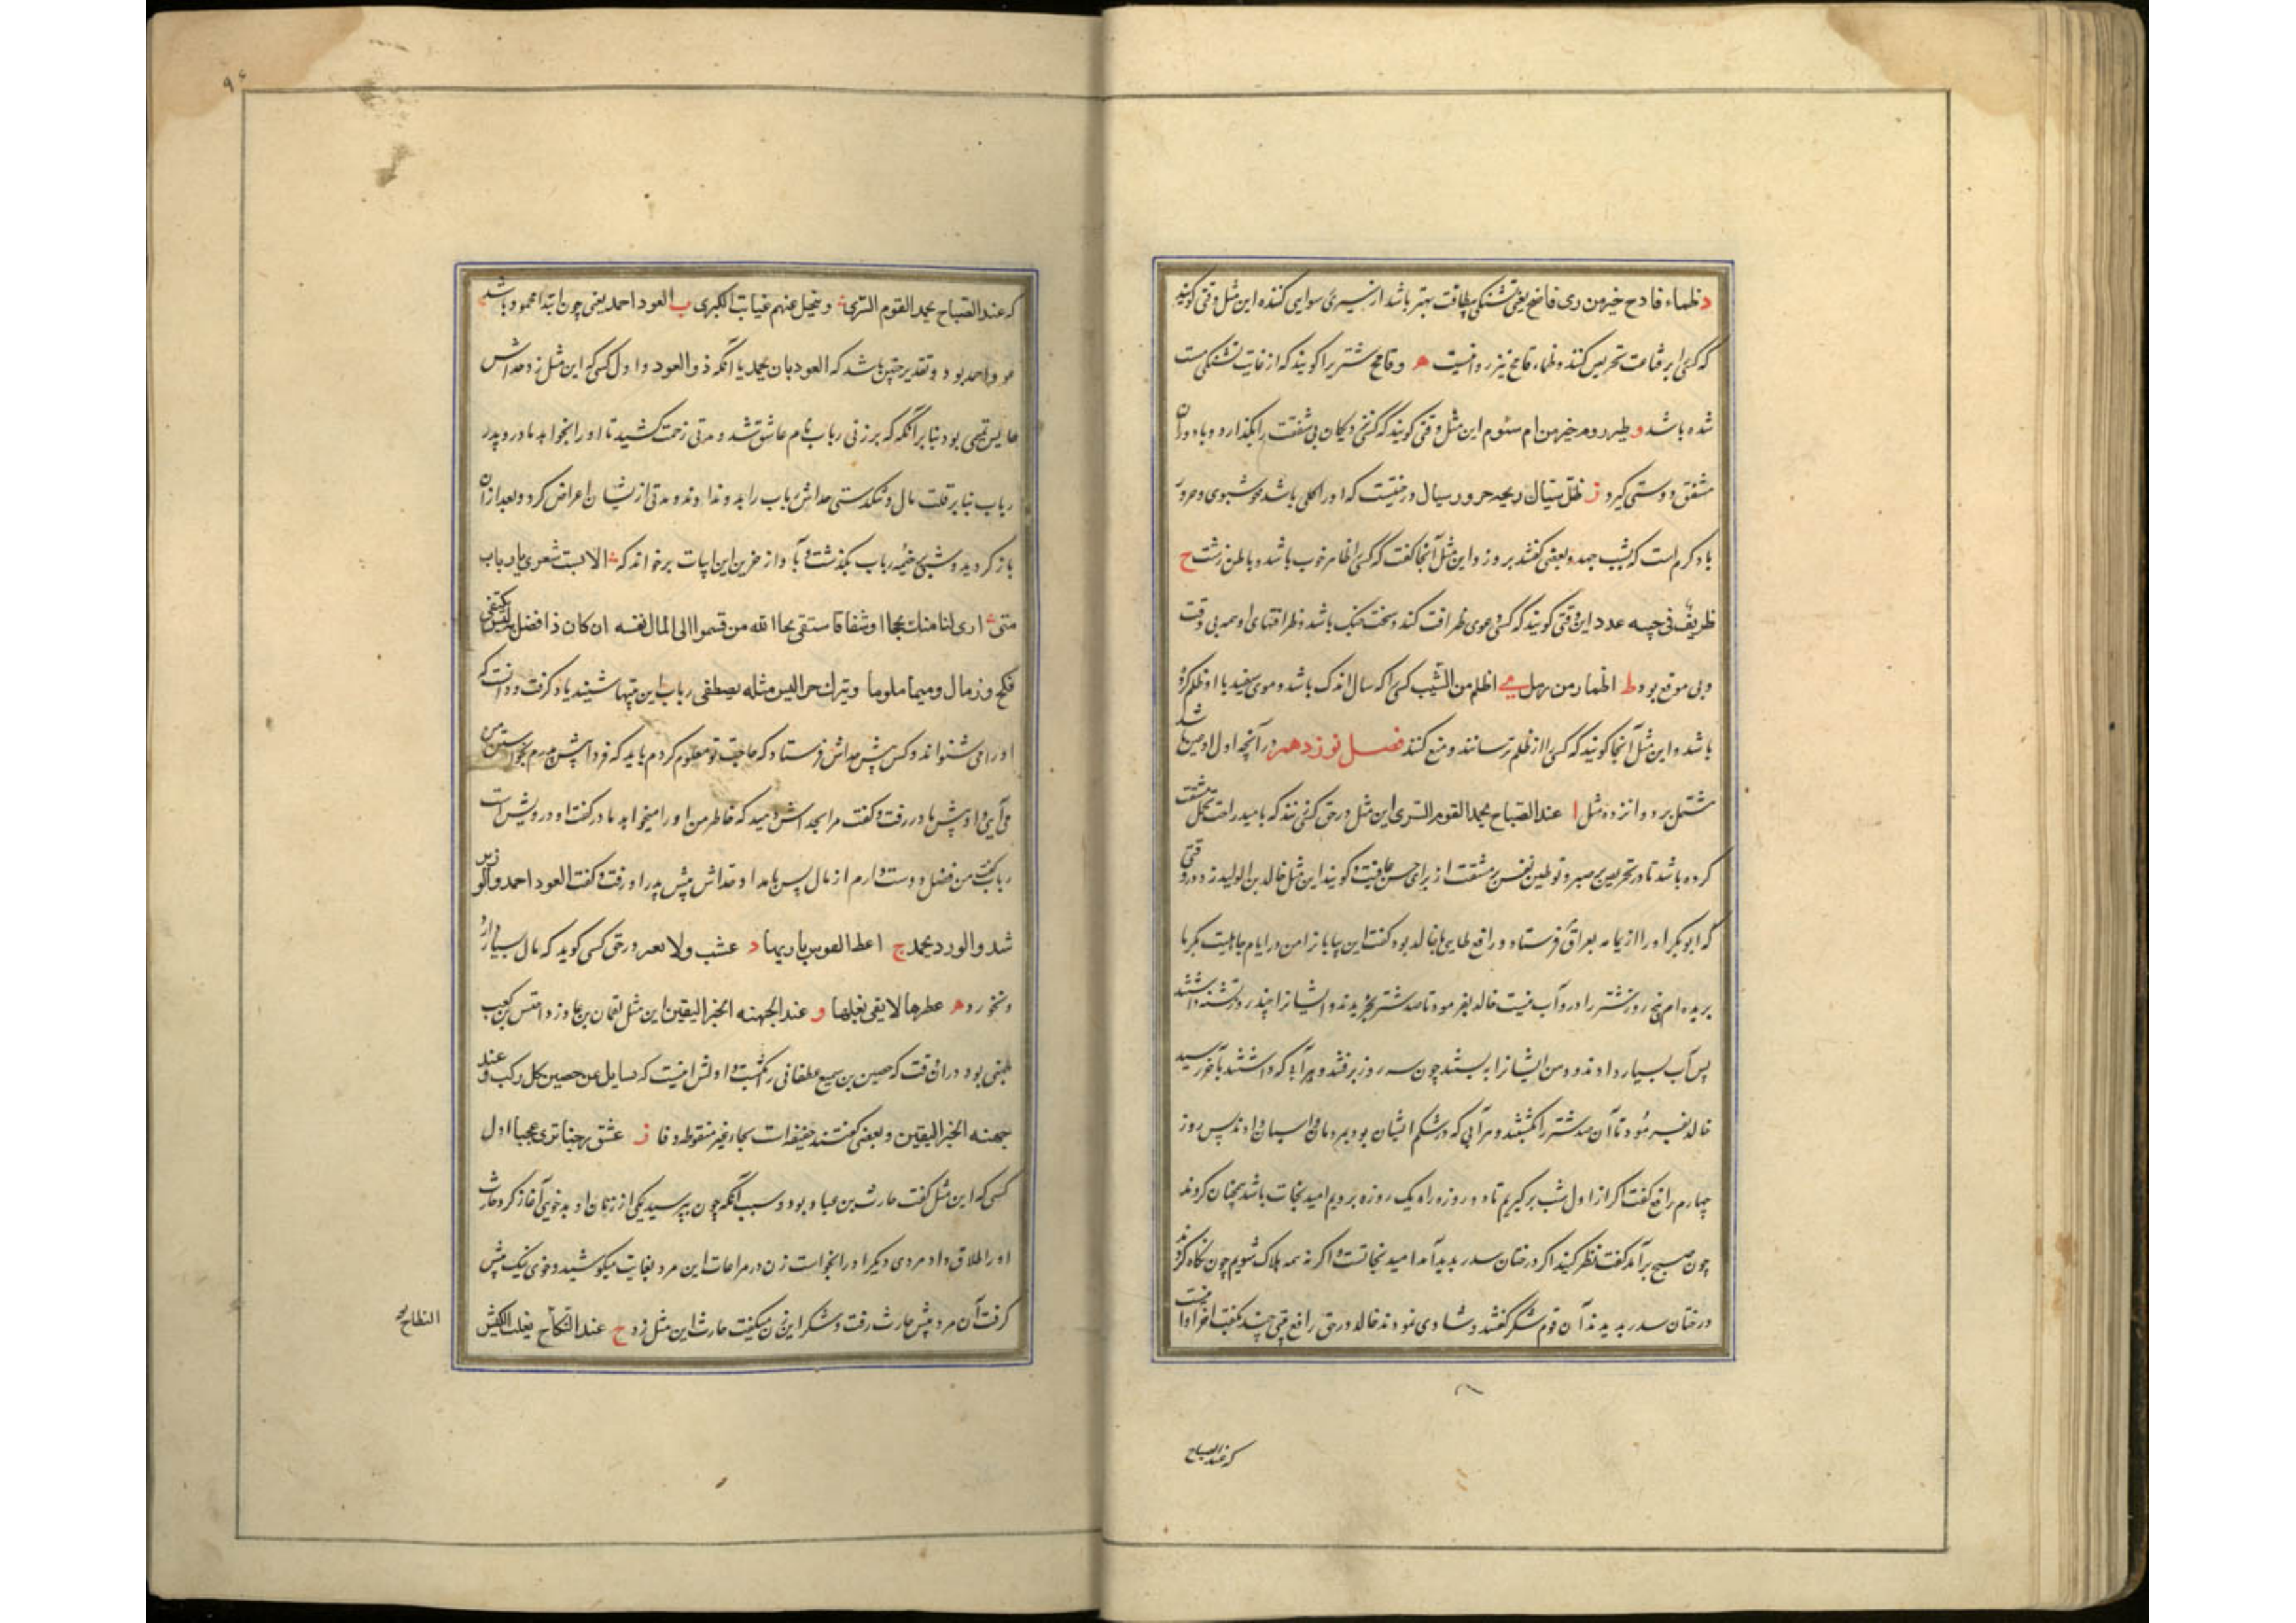 د ظماء قادح خیر من ری فاضح یعنی تشنگی بطاقت بهتر باشد از سیری رسوایی کننده این مثل وقتی گویند
که کسی را بر قناعت تحریص کنند و ظماء قامح نیز روایتست ه و قامح شتریرا گویند که از غایت تشنگی مست
شده باشد و ظئر رءوم خیر من ام سئوم این مثل وقتی گویند که کسی نزدیکان بی شفقت را بگذارد و با دوران
مشفق دوستی گیرد ز ظل سیال ریحه حرور سیال درختیست که او را گلی باشد خوشبوی و حرور
باد گرم است که بشب جهد و بعضی گفتند بروز و این مثل آنجا گفت که کسی را ظاهر خوب باشد و باطن زشت ح
ظریف فی جیبه عدد این وقتی گویند که کسی دعوی ظرافت کند و سخت خنک باشد و ظرافتهای او همه بی وقت
و بی موقع بود ط اظما من رمل ی اظلم من الشیب کسی را که سال اندک باشد و موی سفید با او ظلم کرده
باشد و این مثل آنجا گویند که کسی را از ظلم ترسانند و منع کنند فصل نوزدهم در آنچه اول او عین باشد
مشتمل بر دوانزده مثل ا عند الصباح یحمد القوم السری این مثل در حق کسی زنند که بامید راحت تحمل مشقت
کرده باشد تا در تحریص بر صبر و توطین نفس بر مشقت از برای حسن عاقبت گویند این مثل خالد بن الولید زد در وقتی
که ابوبکر او را از یمامه بعراق فرستاد و رافع طایی با خالد بود گفت این بیابانرا من در ایام جاهلیت یکبار
بریده ام پنج روز شتر را درو آب نیست خالد بفرمود تا صد شتر بخریدند و ایشانرا چند روز تشنه داشتند
پس آب بسیار دادند و دهن ایشانرا ببستند چون سه روز برفتند و هر آب که داشتند بآخر رسید
خالد بفرمود تا آن صد شتر را بکشتند و هر آبی که در شکم ایشان بود بمردمان و اسبان دادند پس روز
چهارم رافع گفت اگر از اول شب برگیریم تا دو روزه راه یک روزه برویم امید نجات باشد همچنان کردند
چون صبح برآمد گفت نظر کنید اگر درختان سدر پدید آمد امید نجاتست و اگر نه همه هلاک شویم چون نگاه کردند
درختان سدر بدیدند آن قوم شکر گفتند و شادی نمودند خالد در حق رافع بیتی چند بگفت آخر آن اینست
که عند الصباح
که عند الصباح یحمد القوم السری و ینجلی عنهم غیابات الکری ب العود احمد یعنی چون ابتدا محمود باشد
عود احمد بود و تقدیر چنین باشد که العود بان یحمد یا آنکه ذو العود و اول کسی که این مثل زد خداش
حابس تمیمی بود بنا بر آنکه که بر زنی رباب نام عاشق شد و مدتی زحمت کشید تا او را بخواهد مادر و پدر
رباب بنا بر قلت مال و تنگدستی خداش رباب را بدو ندادند و مدتی از ایشان اعراض کرد و بعد از آن
باز گردید و شبی بخیمه رباب بگذشت و بآواز حزین این ابیات برخواند که الا لیت شعری یا رباب
متی اری لنا منک نجحا او شفاء فاستقی لحا الله من قسموا الی المال نفسه ان کان ذا فضل به لیس یکتفی
فینکح ذا مال دمیما ملوما و یترک حرا لیس مثله یصطفی رباب این بیتها بشنید یاد گرفت و دانست که
او را می شنواند و کس پیش خداش فرستاد که حاجت تو معلوم کردم باید که فردا پیش پدرم بخواستن من
می آیی و او پیش مادر رفت و گفت مرا بجداش دهید که خاطر من او را میخواهد مادر گفت او درویش است
رباب گفت من فضل دوست دارم از مال پس بامداد خداش پیش پدر او رفت و گفت العود احمد و المرء
شد والورد یحمد ج اعط القوس باریها د عشب و لا بعیر در حق کسی گوید که مال بسیار دارد
و نخورد ه عطرها لا یقی بغلها و عند الجهینه الخبر الیقین این مثل لقمان بن عاد زد
جهینه الخبر الیقین و بعضی گفتند حفینه است بحاء غیر منقوطه و فا ز عش رجبا تری عجبا اول
کسی که این مثل گفت حارث بن عباد بود و سبب آنکه چون پیر سید یکی از زنان او بدخویی آغاز کرد حارث
او را طلاق داد مردی دیگر او را بخواست زن در مراعات این مرد بغایت میکوشید و خوی نیک پیش
گرفت آن مرد پیش حارث رفت و شکر این زن میگفت حارث این مثل زد ح عند النکاح یغلب الکبش
النطاح